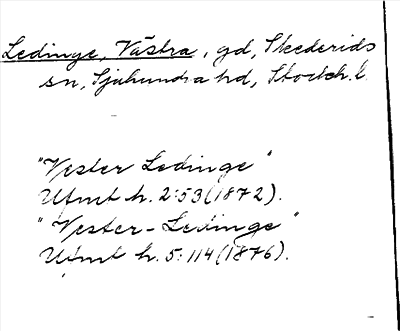 Ledinge, Västra, gd, Skederids
sn, Sjuhundra hd, Stockh. l.
"Vester Ledinge"
Utmt h. 2:53 (1872).
"Vester-Ledinge"
Utmt h. 5:114 (1876).